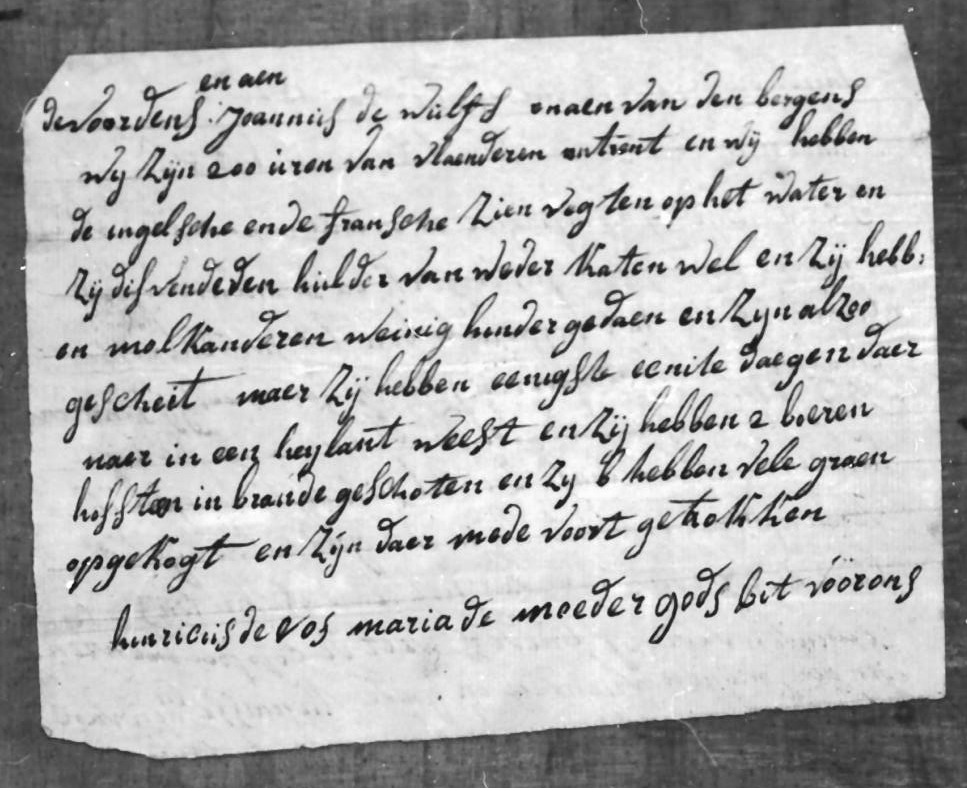 en aen
de Voordens Joannus de wulfs enaen van den bergens
wy zyn 200 uren van vlaenderen entrent en wij hebben
de ingelsche en de fransche zien vegten op het water en
Zij disvendeden hulder van weder Katen wel en Zij hebb:
en molkanderen weinig hinder gedaen en zyn alzoo
gescheit maer Zij hebben eenigste eenite daegen daer
naer in een heylant weest en Zij hebben 2 boeren
hofsteen in brande geschoten en zy hebben vele graen
opgekogt en Zijn daer mede voort getrokken
henricus de vos maria de moeder gods bit voor ons